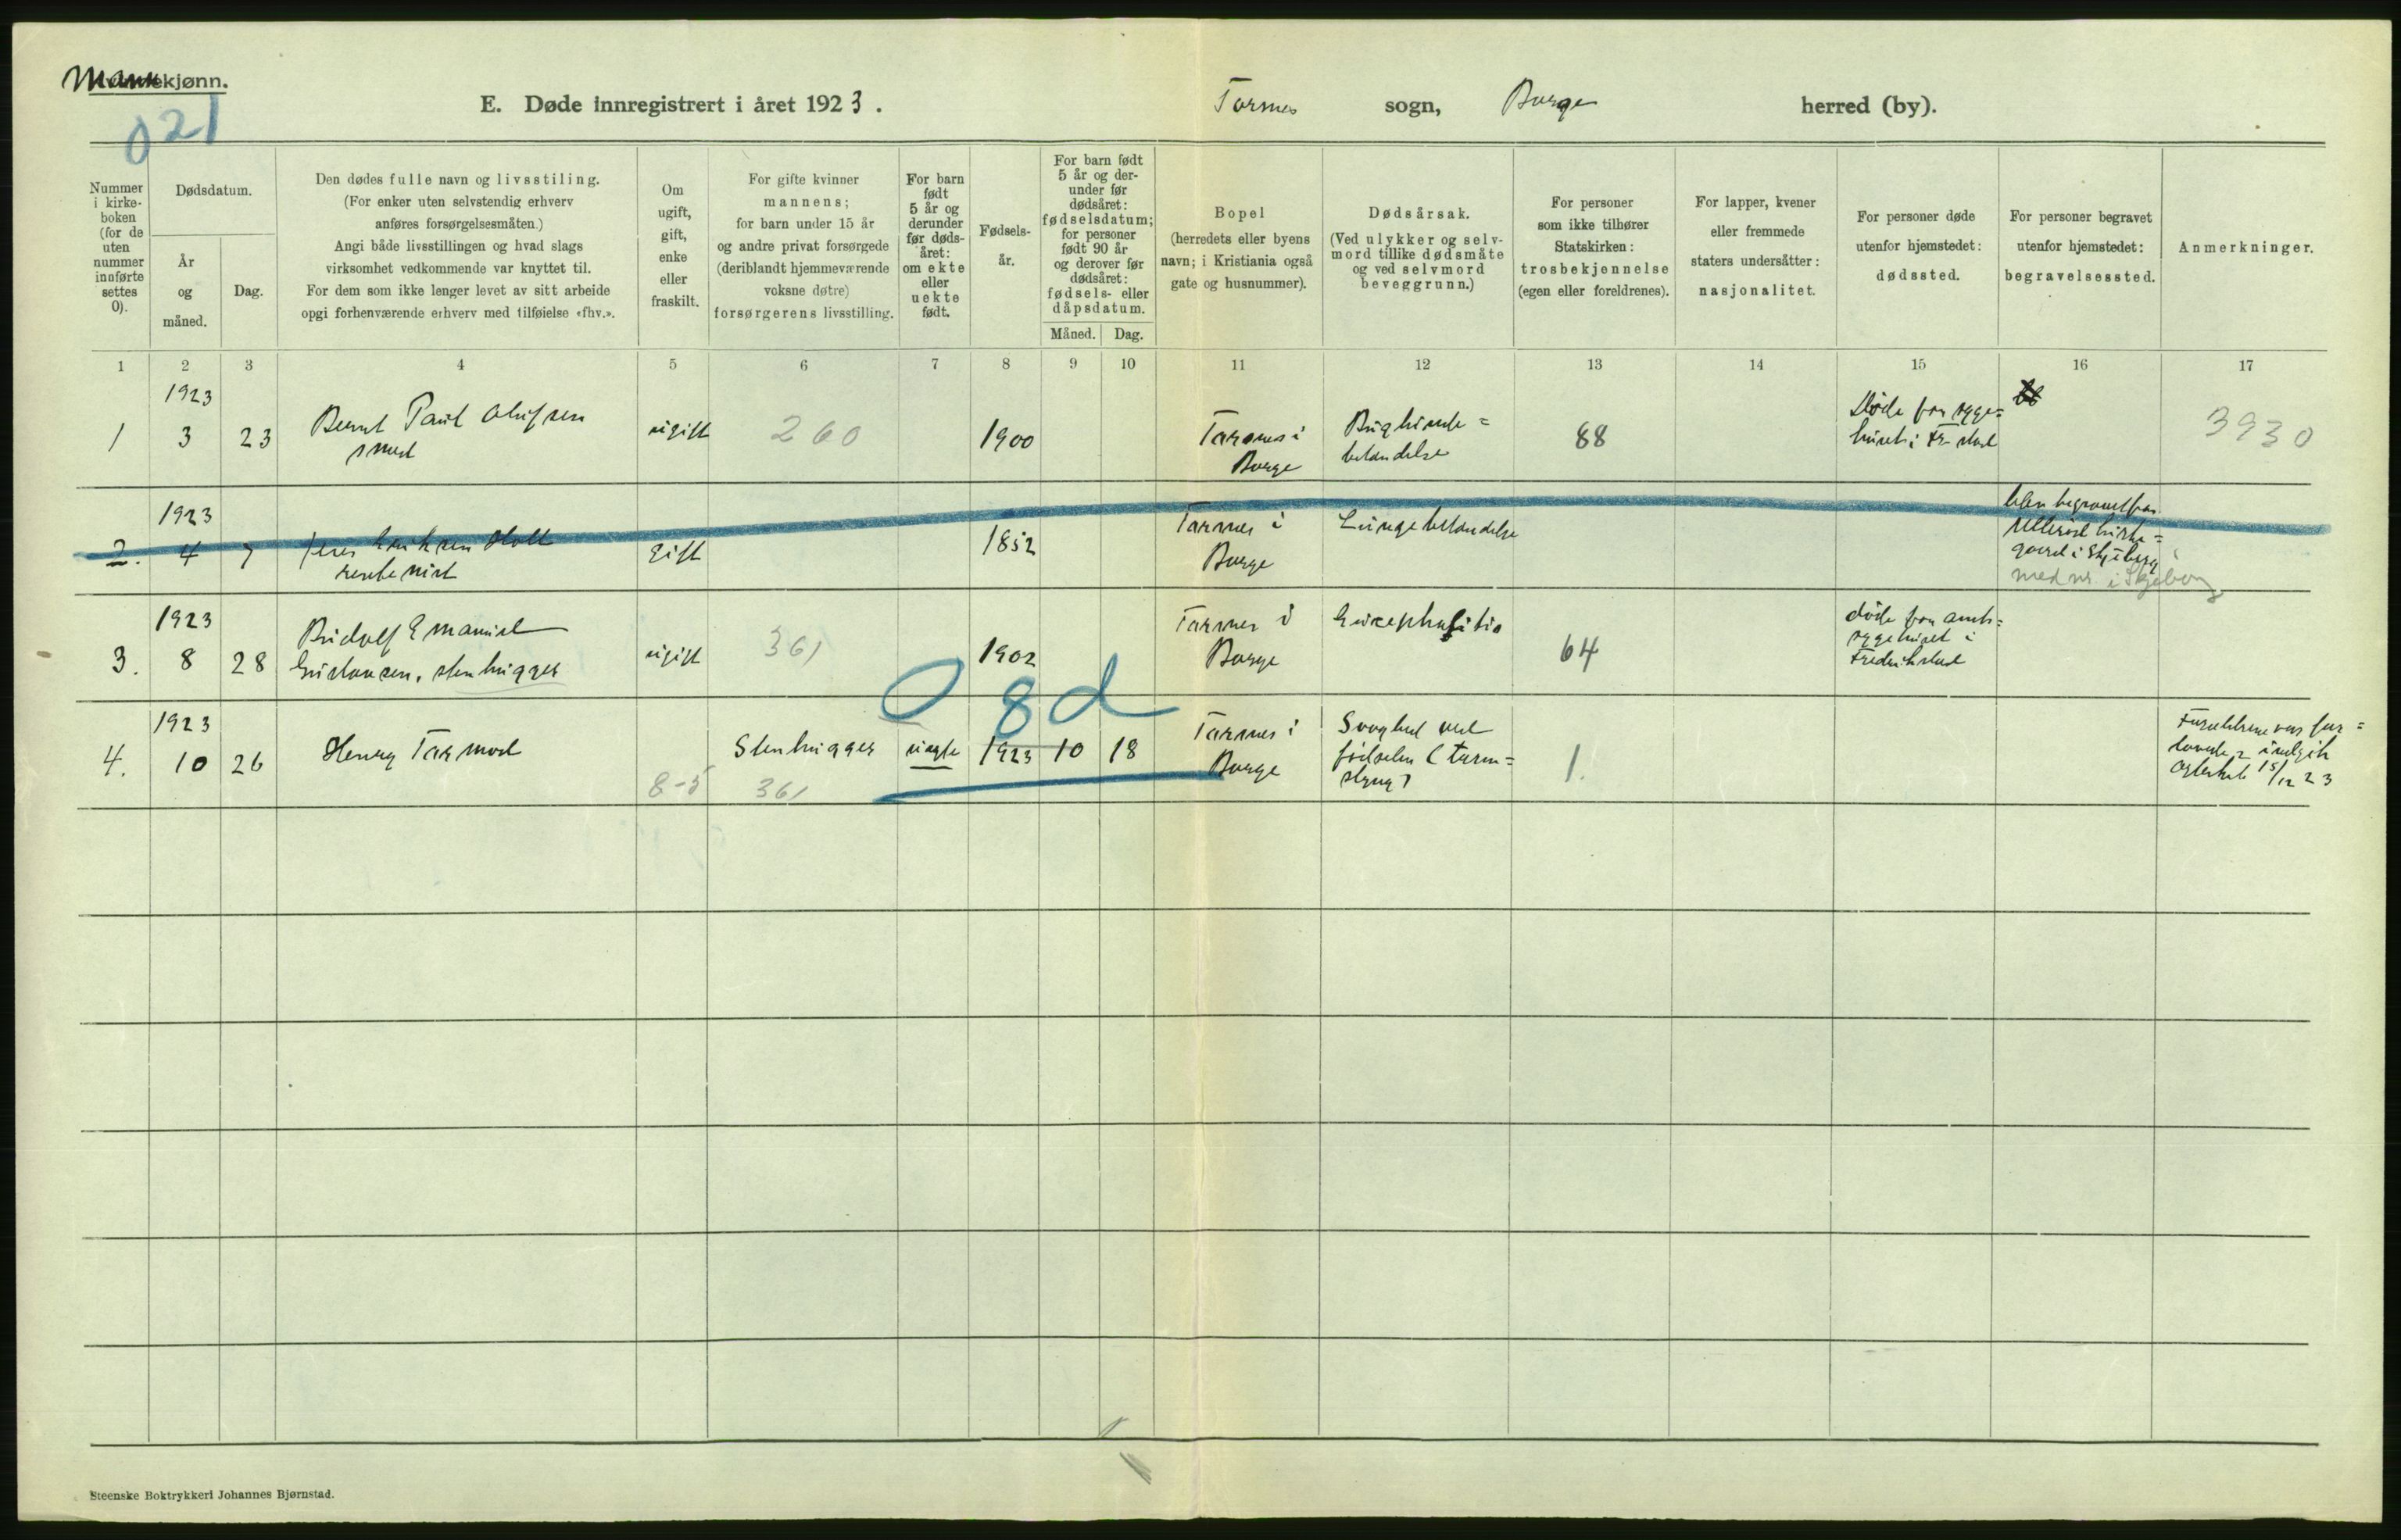 Mannkjønn.
021
E. Døde innregistrert i året 1923.
Torsnes sogn, Borge herred (by).
Nummer i kirke-boken (for de uten nummer innførte settes 0).
Dødsdatum.
År og måned.
Dag.
Den dødes fulle navn og livsstilling.
(For enker uten selvstendig erhverv
anføres forsørgelsesmåten.)
Angi både livsstillingen og hvad slags
virksomhet vedkommende var knyttet til.
For dem som ikke lenger levet av sitt arbeide
opgi forhenværende erhverv med tilføielse «fhv.».
Om
ugift,
gift,
enke
eller
fraskilt.
For gifte kvinner
mannens;
for barn under 15 år
og andre privat forsørgede
(deriblandt hjemmeværende
voksne døtre)
forsørgerens livsstilling.
For barn
født
5 år og
derunder
før døds-
året:
om ekte
eller
uekte
født.
Fødsels-
år.
For barn født
5 år og der-
under før
dødsåret:
fødselsdatum;
for personer
født 90 år
og derover før
dødsåret:
fødsels- eller
dåpsdatum.
Måned. Dag.
Bopel
(herredets eller byens
navn; i Kristiania også
gate og husnummer).
Dødsårsak.
(Ved ulykker og selv-
mord tillike dødsmåte
og ved selvmord
beveggrunn.)
For personer
som ikke tilhører
Statskirken:
trosbekjennelse
(egen eller foreldrenes).
For lapper, kvener
eller fremmede
staters undersåtter:
nasjonalitet.
For personer døde
utenfor hjemstedet:
dødssted.
For personer begravet
utenfor hjemstedet:
begravelsessted.
Anmerkninger.
1 2 3 4 5 6 7 8 9 10 11 12 13 14 15 16 17
1923
1 3 23 Bernt Paul Olufsen ugift 260 1900 Torsnes i Borge Bughinde= betændelse 88 Døde paa syge= huset i Fr.stad 3930
smed
1923
2. 4 7 Jens Eriksen Holt gift 1852 Torsnes i Borge Lungebetændelse
rentenist
blev begravet paa
Ullerøi kirke=
gaard i Skjeberg
med nr i Skjeberg
1923
3. 8 28 Rudolf Emanuel ugift 361 1902 Torsnes i Borge Encephalitis 64
Gustavsen, stenhugger
døde paa amts=
sygehuset i
Fredrikstad
08d
1923
4. 10 26 Henry Tormod Stenhugger uegte 1923 10 18 Torsnes i Borge
8-5 361
Svaghed ved
fødselen (tarm=
slyng)
1.
Forældrene var for=
lovede, indgik
ægteskab 15/12 23
Steenske Boktrykkeri Johannes Bjørnstad.